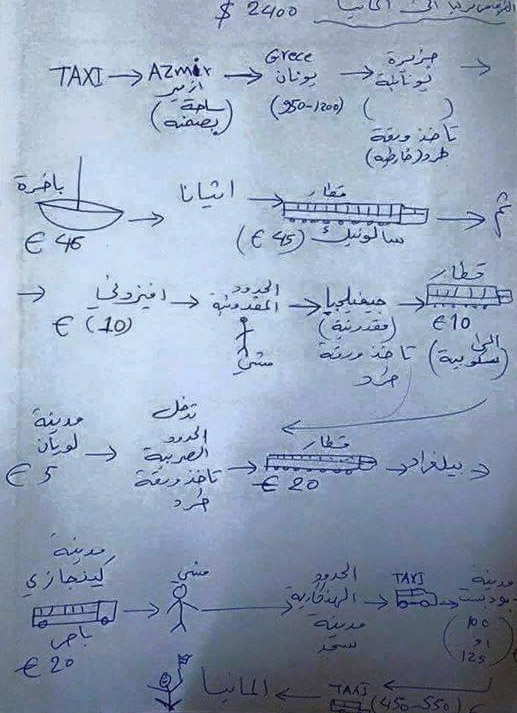 الى المانيا $ 2400
TAXI → Azmir → Grece → جزيرة →
ازمير يونان يونانية
(ساحة (950-1200) ( )
بصمنه) تأخذ ورقة
طرد (خارطه)
باخرة → اثيانا → قطار → ثم
€ 45 (€ 45) سالونيك
→ افيزوني → الحدود المقدونية → جيفيليجيا → قطار
€ (10) مشي (مقدونية) €10
تأخذ ورقة (الى
طرد سكوبية)
مدينة → تدخل → قطار → بيلغراد
لوبان الحدود € 20
€ 5 الصربية
تأخذ ورقة
طرد
مدينة مشي الحدود TAXI مدينة
كينجازي → → الهنغارية → → بودبست
باص مدينة (100
€ 20 سجد او
125)
المانيا ← TAXI ←
(450-550)